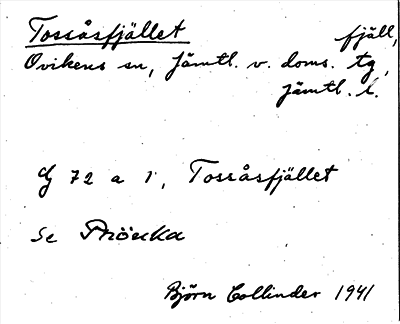 Tossåsfjället fjäll,
Ovikens sn, Jämtl. v. doms. tg,
Jämtl. l.
72 a 1, Tossåsfjället
Se
Björn Collinder 1941